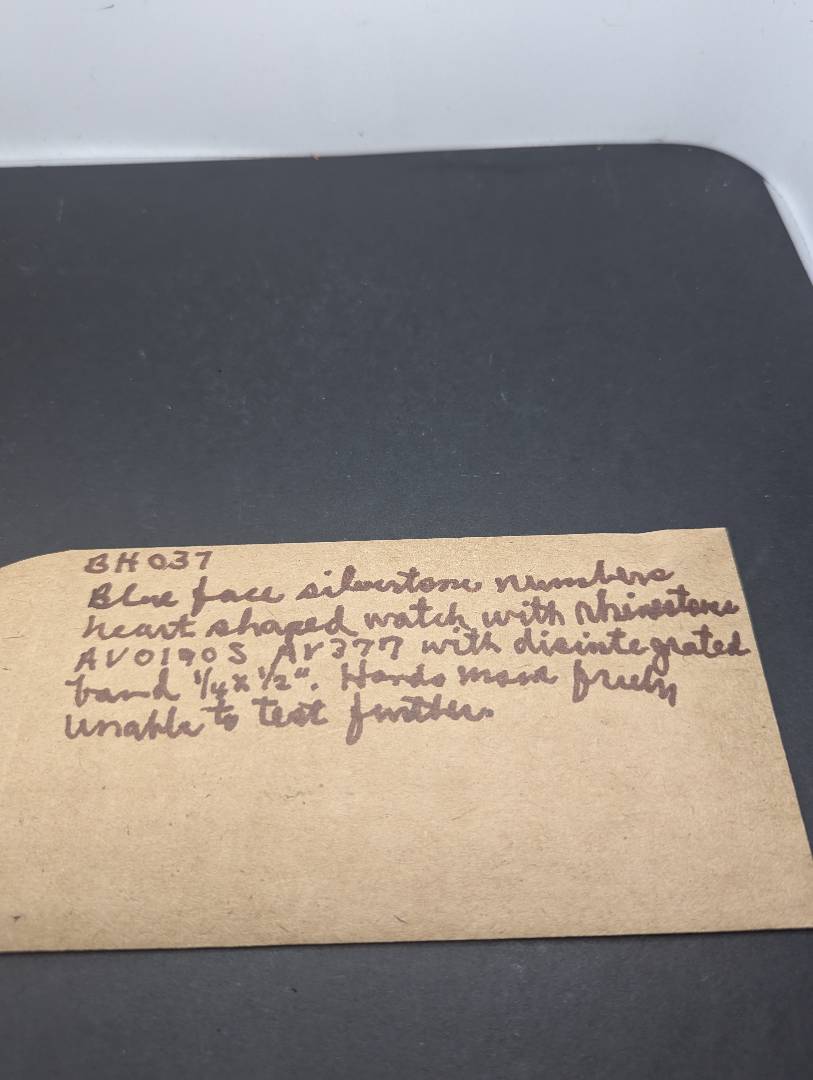 BH037
Blue face silvertone numbers
heart shaped watch with rhinestones
AV0190S AV377 with disintegrated
band 1/4 x 1/2". Hands move freely
unable to test further.